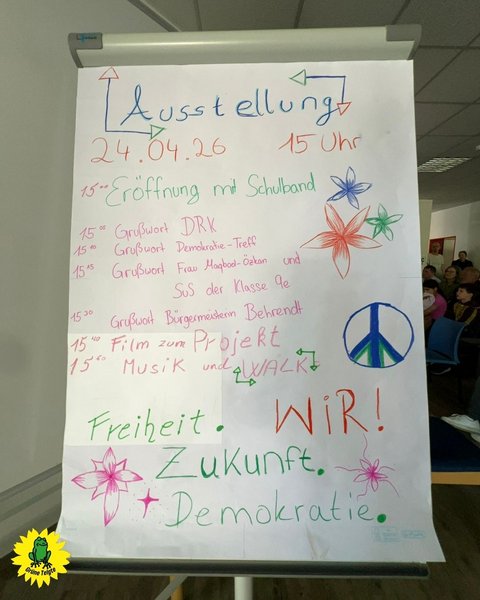 Ausstellung
24.04.26 15 Uhr
15⁰⁰ Eröffnung mit Schulband
Grußwort DRK
Grußwort Demokratie-Treff
Grußwort Frau Maqbod-Özkan und
SuS der Klasse 9e
15³⁰ Grußwort Bürgermeisterin Behrendt
15⁴⁰ Film zum Projekt
Musik und WALK
Freiheit. WiR!
Zukunft.
Demokratie.
Grüne Telgte